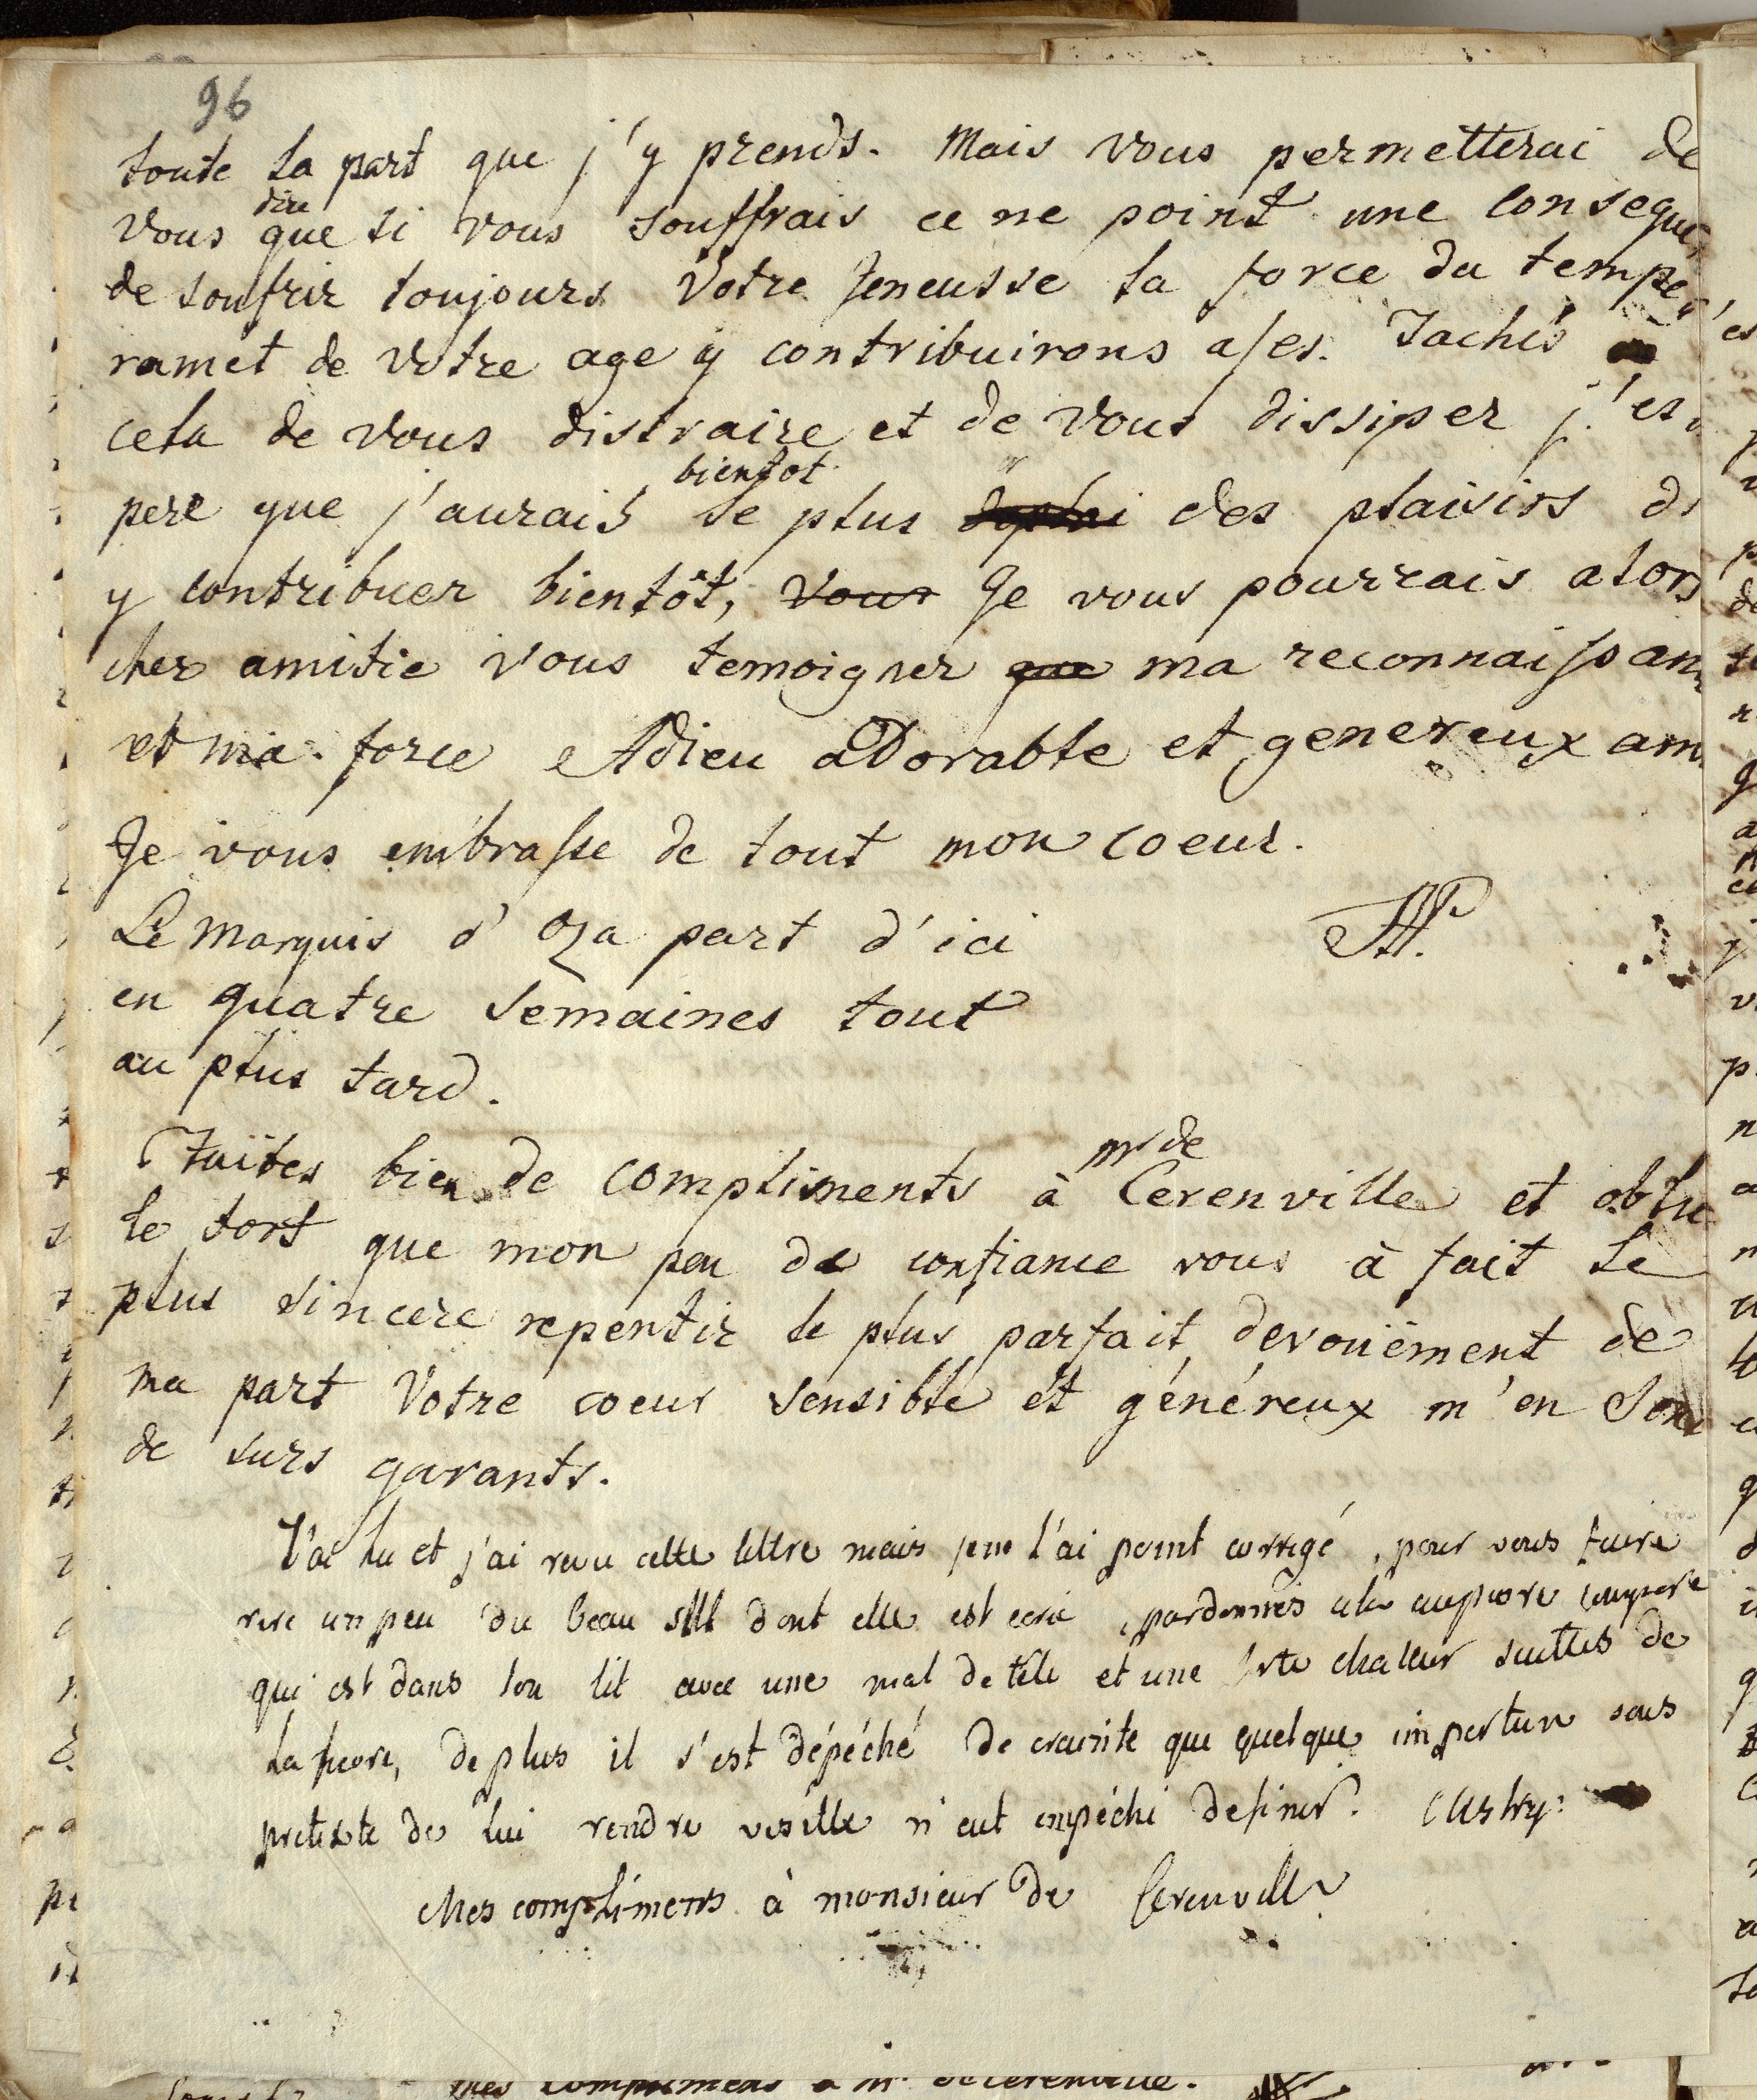 96
toute la part que j'y prends. Mais vous permetterai de
vous dire que si vous souffrais ce ne point une conseque
de soufrir toujours Votre Jeneusse la force du tempe
ramet de votre age y contribuirons asses. Tachés
cela de vous distraire et de vous dissiper j'es
pere que j'aurais bientot le plus des plaisirs d
y contribuer bientôt, vous Je vous pourrais alors
cher amitie vous temoigner que ma reconnaissan
et ma force Adieu adorable et genereux am
Je vous embrasse de tout mon coeur.
Le marquis d'Oza part d'ici
en quatre semaines tout
au plus tard.
Faites bien de compliments à mr de Cerenville et
le tort que mon peu de confiance vous à fait le
plus sincere repentir le plus parfait devouëment de
ma part Votre coeur sensible et généreux m'en sont
de surs garants.
J'ai lu et j'ai revu cette lettre mais je ne l'ai point corrigé, pour vous faire
rire un peu du beau still dont elle est ecrie, pardonnés
qui est dans son lit avec une mal de tête et une forte chaleur suittes de
la fievre, de plus il s'est dépéché de crainte que quelque importun sous
pretexte de lui rendre visitte n'eut empéché de finir.
Mes compliments à monsieur de Cerenville
mes complimens a mr decerenville.